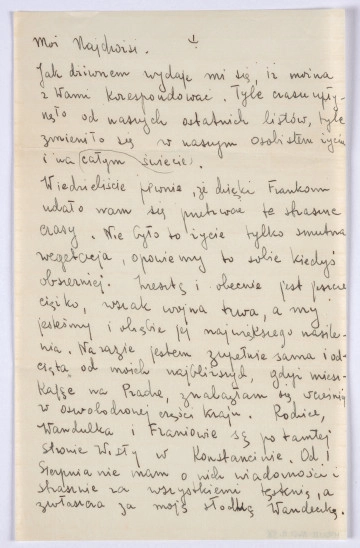 Moi Najdrożsi.
Jak dziwnem wydaje mi się, iż można
z Wami korespondować. Tyle czasu upły-
nęło od naszych ostatnich listów, tyle
zmieniło się w naszym osobistem życiu
i na całym świecie.
Wiedzieliście pewnie, że dzięki Frankom
udało nam się przetrwać te straszne
czasy. Nie było to życie tylko smutna
wegetacja, opowiemy to sobie kiedyś
obszerniej. Zresztą i obecnie jest jeszcze
ciężko, wszak wojna trwa, a my
jesteśmy i obiekcie jej największego nasile-
nia. Narazie jestem zupełnie sama i od-
cięta od moich najbliższych, gdyż miesz-
kając na Pradze, znalazłam się wcześniej
w oswobodzonej części kraju. Rodzice,
Wandulka i Franiowie są po tamtej
stronie Wisły w Konstancinie. Od 1
Sierpnia nie mam o nich wiadomości i
strasznie za wszystkiemi tęsknię, a
zwłaszcza za moją słodką Wandeczką.